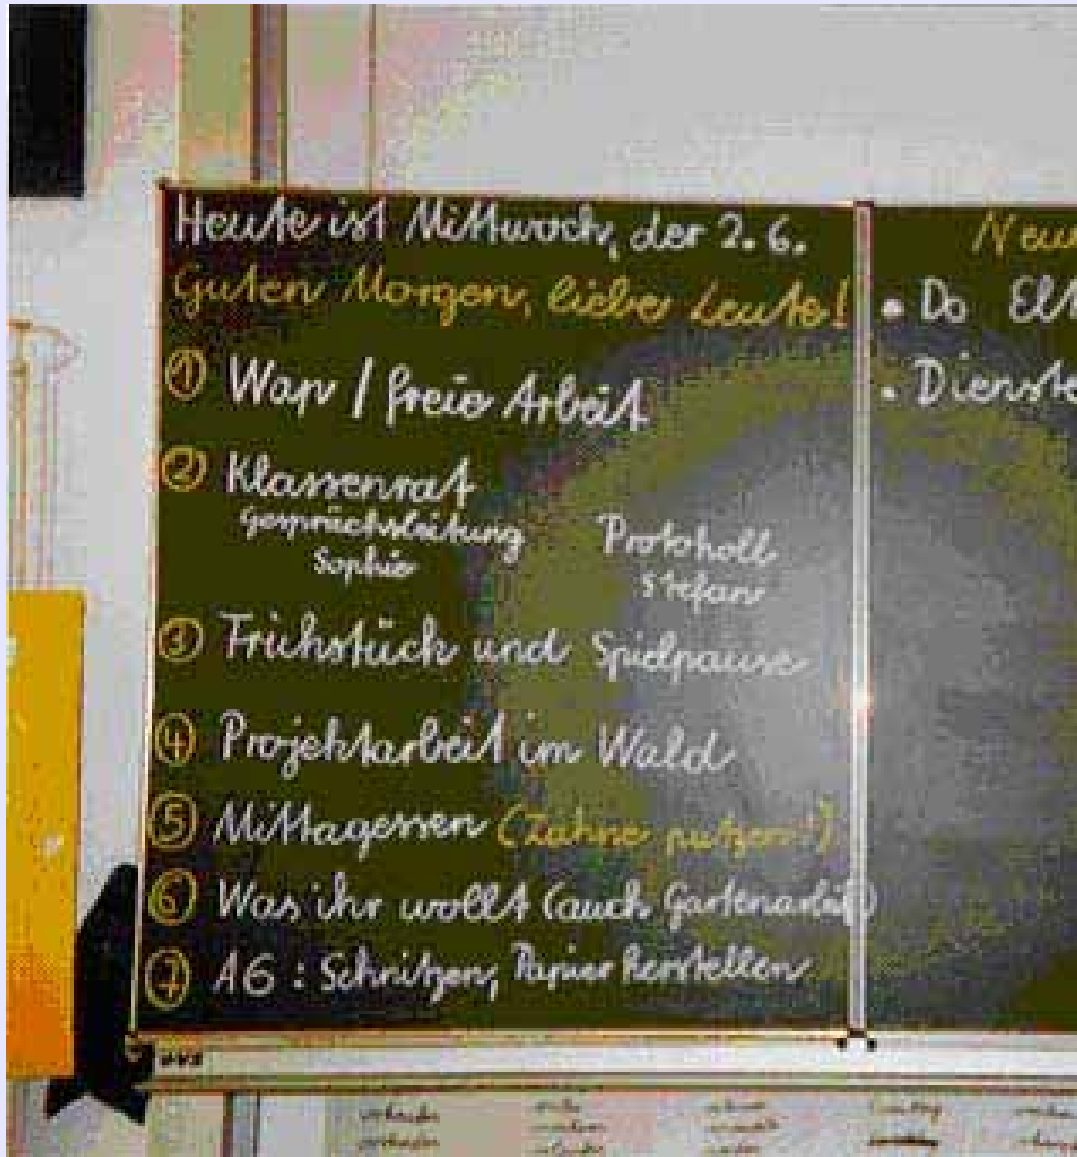 Heute ist Mittwoch, der 2.6.
Guten Morgen, liebe Leute!
① Wap / freie Arbeit
② Klassenrat
Gesprächsleitung
Sophie
Protokoll
Stefan
③ Frühstück und Spielpause
④ Projektarbeit im Wald
⑤ Mittagessen (Zähne putzen!!)
⑥ Was ihr wollt (auch Gartenarbeit)
⑦ AG: Schnitzen, Papier herstellen
Neu
• Do Elt
• Dienste